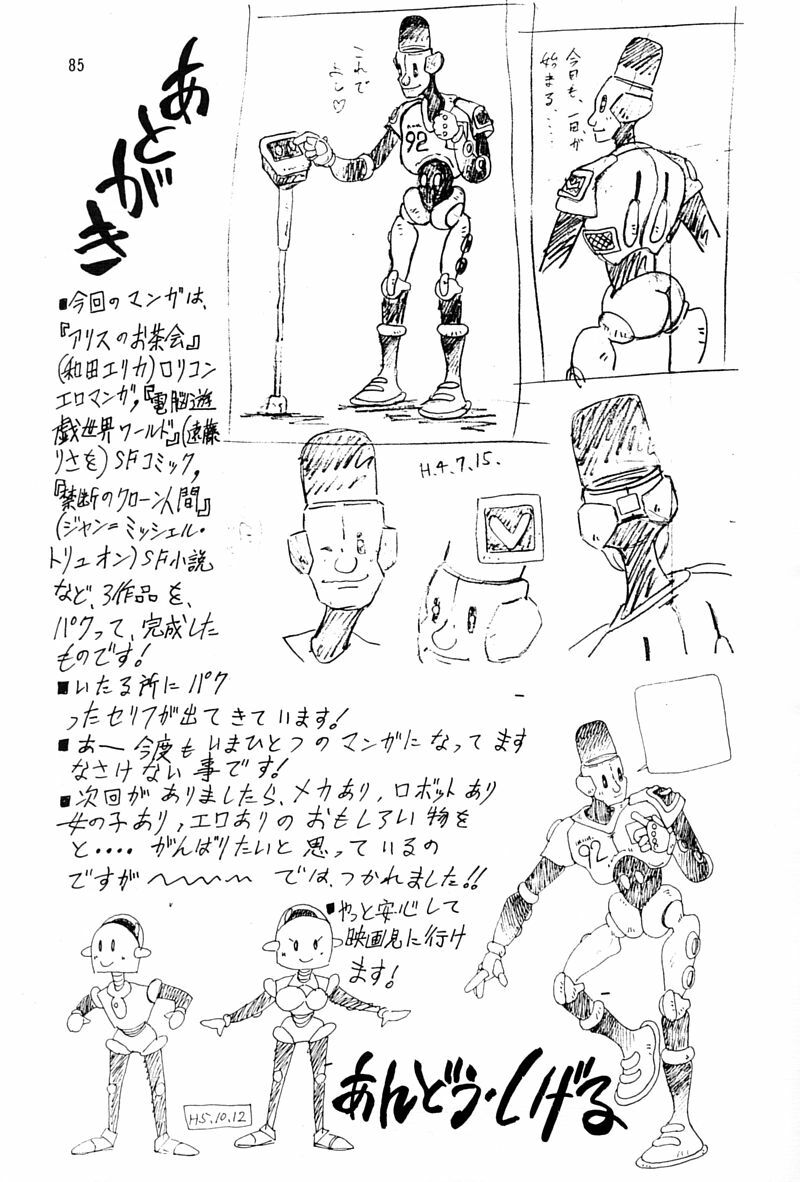 85
あとがき
これで
よし♡
92
今日も、一日が
始まる....
H.4.7.15.
■今回のマンガは、
『アリスのお茶会』
(和田エリカ)ロリコン
エロマンガ,『電脳遊
戯世界ワールド』(遠藤
りさを)SFコミック,
『禁断のクローン人間』
(ジャン=ミッシェル・
トリュオン)SF小説
など、3作品を、
パクって、完成した
ものです!
■いたる所にパク
ったセリフが出てきています!
■あー今度もいまひとつのマンガになってます
なさけない事です!
■次回がありましたら、メカあり,ロボットあり
女の子あり,エロありのおもしろい物を
と・・・・がんばりたいと思っているの
ですが〜〜〜〜では、つかれました!!
■やっと安心して
映画見に行け
ます!
92
H5.10.12
あんどう・しげる